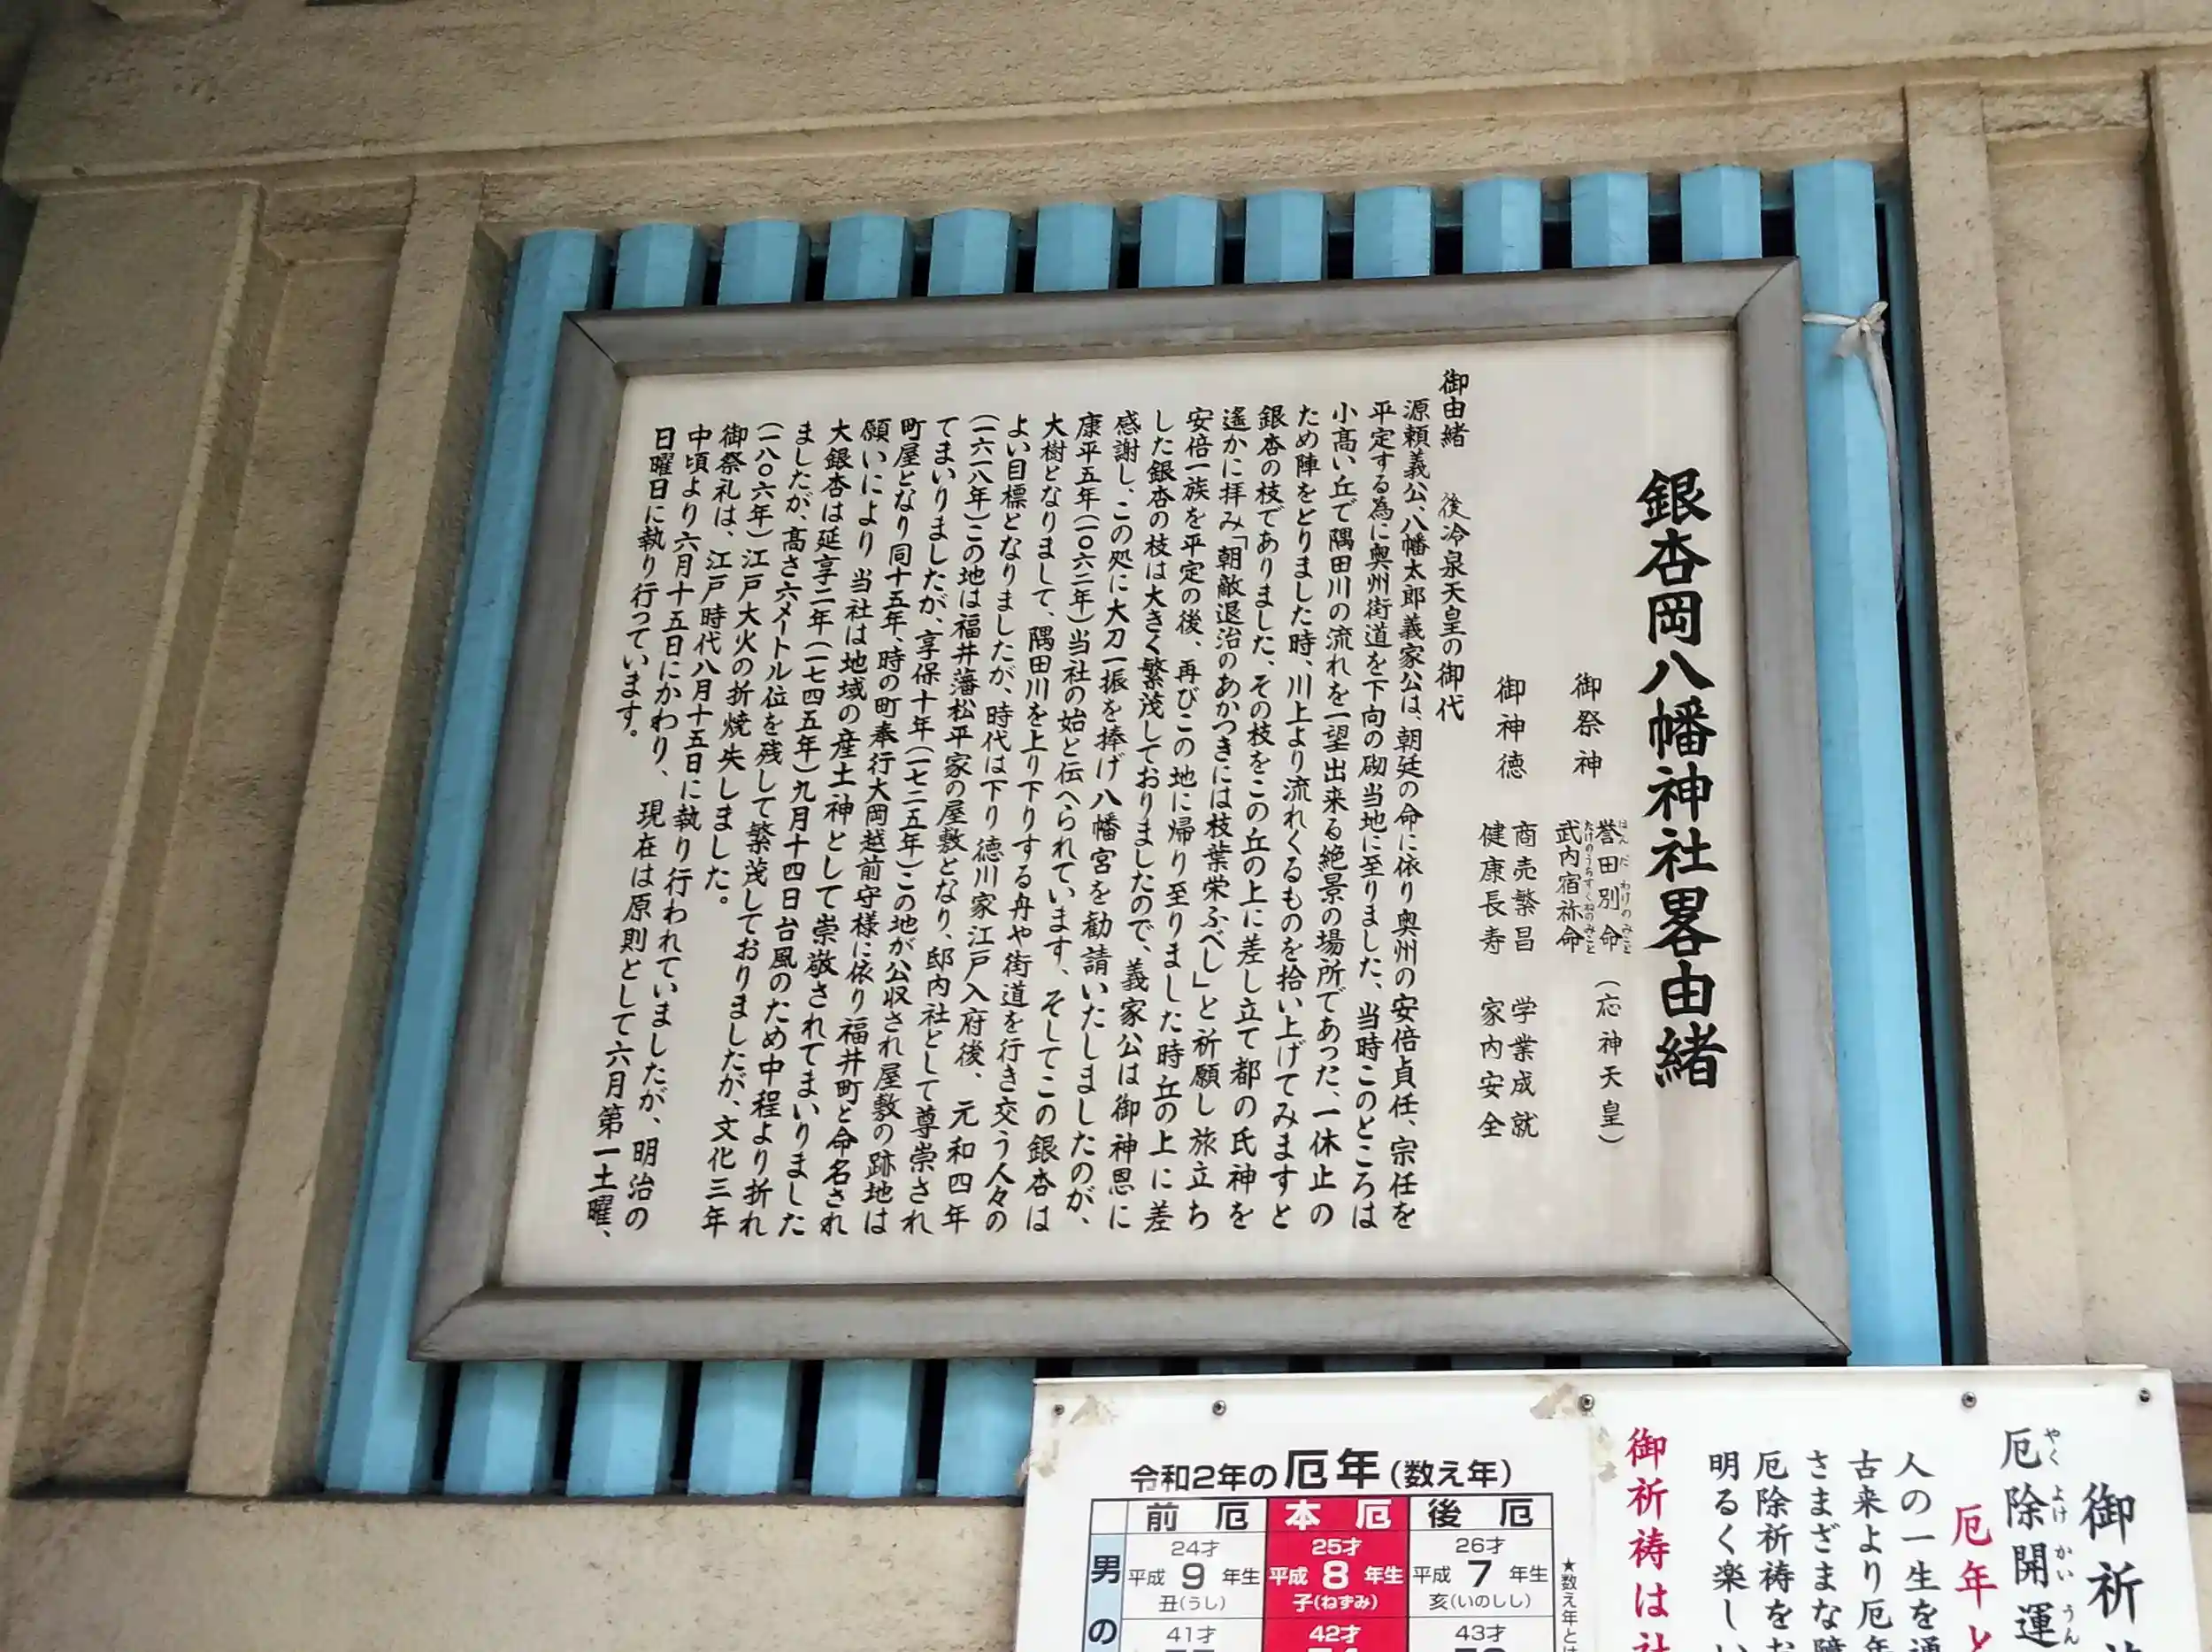 銀杏岡八幡神社畧由緒
御祭神 誉田別命（応神天皇）
ほんだわけのみこと
武内宿祢命
たけのうちすくねのみこと
御神徳 商売繁昌 学業成就
健康長寿 家内安全
御由緒 後冷泉天皇の御代
源頼義公、八幡太郎義家公は、朝廷の命に依り奥州の安倍貞任、宗任を
平定する為に奥州街道を下向の砌当地に至りました、当時このところは
小高い丘で隅田川の流れを一望出来る絶景の場所であった、一休止の
ため陣をとりました時、川上より流れくるものを拾い上げてみますと
銀杏の枝でありました、その枝をこの丘の上に差し立て都の氏神を
遙かに拝み「朝敵退治のあかつきには枝葉栄ふべし」と祈願し旅立ち
安倍一族を平定の後、再びこの地に帰り至りました時丘の上に差
した銀杏の枝は大きく繁茂しておりましたので、義家公は御神恩に
感謝し、この処に大刀一振を捧げ八幡宮を勧請いたしましたのが、
康平五年（一〇六二年）当社の始と伝へられています、そしてこの銀杏は
大樹となりまして、隅田川を上り下りする舟や街道を行き交う人々の
よい目標となりましたが、時代は下り徳川家江戸入府後、元和四年
（一六一八年）この地は福井藩松平家の屋敷となり、邸内社として尊崇され
てまいりましたが、享保十年（一七二五年）この地が公収され屋敷の跡地は
町屋となり同十五年、時の町奉行大岡越前守様に依り福井町と命名され
願いにより当社は地域の産土神として崇敬されてまいりました
大銀杏は延享二年（一七四五年）九月十四日台風のため中程より折れ
ましたが、高さ六メートル位を残して繁茂しておりましたが、文化三年
（一八〇六年）江戸大火の折焼失しました。
御祭礼は、江戸時代八月十五日に執り行われていましたが、明治の
中頃より六月十五日にかわり、現在は原則として六月第一土曜、
日曜日に執り行っています。
御祈
厄除開運
やくよけかいうん
厄年と
人の一生を通
古来より厄年
さまざまな障
厄除祈祷をお
明るく楽しい
御祈祷は社
令和2年の厄年（数え年）
前厄 本厄 後厄
男の
24才 25才 26才
平成9年生 平成8年生 平成7年生
丑(うし) 子(ねずみ) 亥(いのしし)
41才 42才 43才
★数え年とは